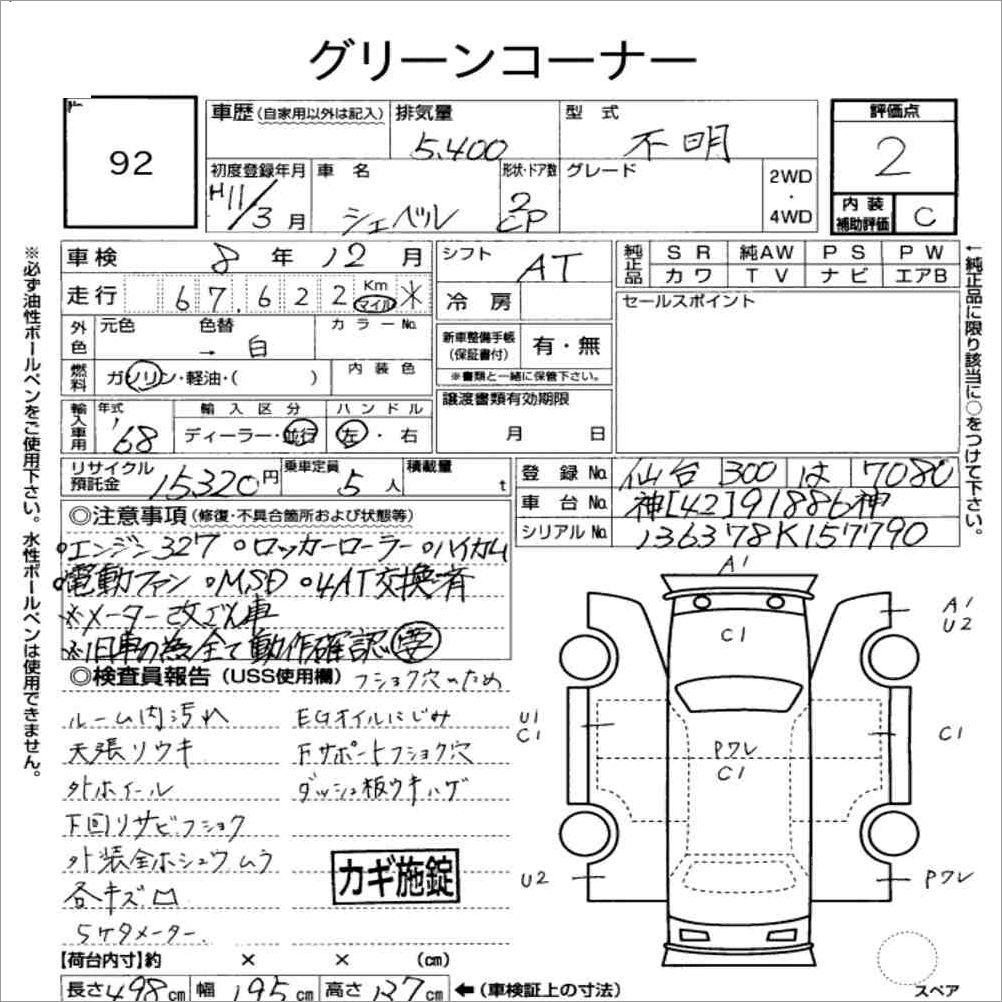 グリーンコーナー
92
車歴(自家用以外は記入) 排気量 5.400 型式 不明 評価点 2
初度登録年月 H11/3月 車名 シェベル 形状・ドア数 2 CP グレード 2WD・4WD 内装補助評価 C
※必ず油性ボールペンをご使用下さい。水性ボールペンは使用できません。
車検 8年12月 シフト AT
純正品 SR 純AW PS PW
カワ TV ナビ エアB
←純正品に限り該当に○をつけて下さい。
走行 67,622 Km マイル ※ 冷房
セールスポイント
外色 元色 色替 → 白 カラーNo.
新車整備手帳(保証書付) 有・無
※書類と一緒に保管下さい。
燃料 ガソリン・軽油・( ) 内装色
譲渡書類有効期限 月 日
輸入車用 年式 '68 輸入区分 ディーラー・並行 ハンドル 左・右
リサイクル預託金 15320円 乗車定員 5人 積載量 t
登録No. 仙台 300 は 7080
車台No. 神[42]91886神
シリアルNo. 136378K157790
◎注意事項(修復・不具合箇所および状態等)
。エンジン327 。ロッカーローラー 。ハイカム
。電動ファン 。MSD 。4AT交換済
※メーター改ざん車
※旧車の為全て動作確認要
◎検査員報告(USS使用欄) フショク穴のため
ルーム内汚れ EGオイルにじみ
天張リウキ 下サポートフショク穴
外ホイール ダッシュ板ウキハゲ
下回リサビフショク
外装全ホシュウムラ
各キズ凹
5ケタメーター
カギ施錠
A1
C1
A1
U2
U1
C1
Pワレ
C1
C1
U2
Pワレ
スペア
【荷台内寸】約 × × (cm)
長さ498cm 幅195cm 高さ137cm ←(車検証上の寸法)